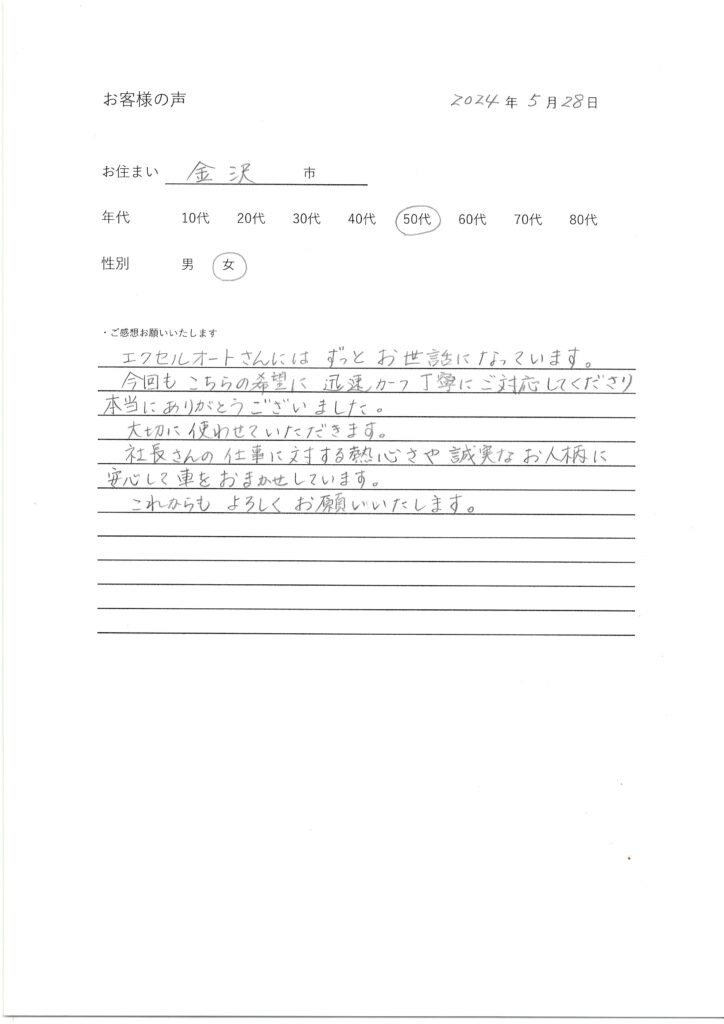 お客様の声
2024 年 5 月 28 日
お住まい 金沢 市
年代 10代 20代 30代 40代 50代 60代 70代 80代
性別 男 女
・ご感想お願いいたします
エクセルオートさんには ずっと お世話になっています。
今回も こちらの希望に 迅速かつ 丁寧に ご対応してくださり
本当に ありがとう ございました。
大切に 使わせていただきます。
社長さんの 仕事に対する熱心さや 誠実な お人柄に
安心して 車を おまかせしています。
これからも よろしく お願いいたします。